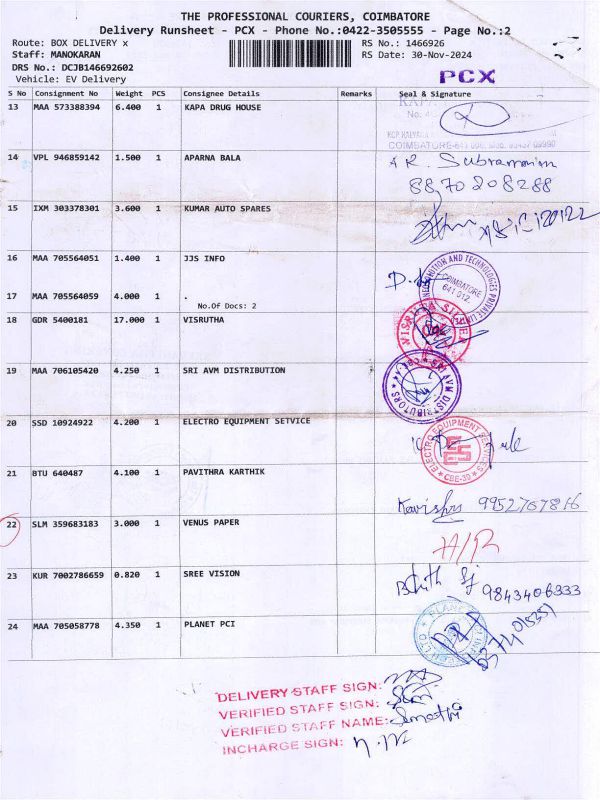 THE PROFESSIONAL COURIERS, COIMBATORE
Delivery Runsheet - PCX - Phone No.:0422-3505555 - Page No.:2
Route: BOX DELIVERY x
RS No.: 1466926
Staff: MANOKARAN
RS Date: 30-Nov-2024
DRS No.: DCJB146692602
Vehicle: EV Delivery
PCX
S No Consignment No Weight PCS Consignee Details Remarks Seal & Signature
13 MAA 573388394 6.400 1 KAPA DRUG HOUSE
14 VPL 946859142 1.500 1 APARNA BALA
A R. Subramanim
8870208288
15 IXM 303378301 3.600 1 KUMAR AUTO SPARES
16 MAA 705564051 1.400 1 JJS INFO
COIMBATORE
641 012.
17 MAA 705564059 4.000 1 .
No.Of Docs: 2
18 GDR 5400181 17.000 1 VISRUTHA
19 MAA 706105420 4.250 1 SRI AVM DISTRIBUTION
AVM DISTRIBUTORS
20 SSD 10924922 4.200 1 ELECTRO EQUIPMENT SETVICE
ELECTRO EQUIPMENT SERVICES
EES
CBE-30
21 BTU 640487 4.100 1 PAVITHRA KARTHIK
9952767816
22 SLM 359683183 3.000 1 VENUS PAPER
H/R
23 KUR 7002786659 0.820 1 SREE VISION
9843406333
24 MAA 705058778 4.350 1 PLANET PCI
DELIVERY STAFF SIGN:
VERIFIED STAFF SIGN:
VERIFIED STAFF NAME:
INCHARGE SIGN: